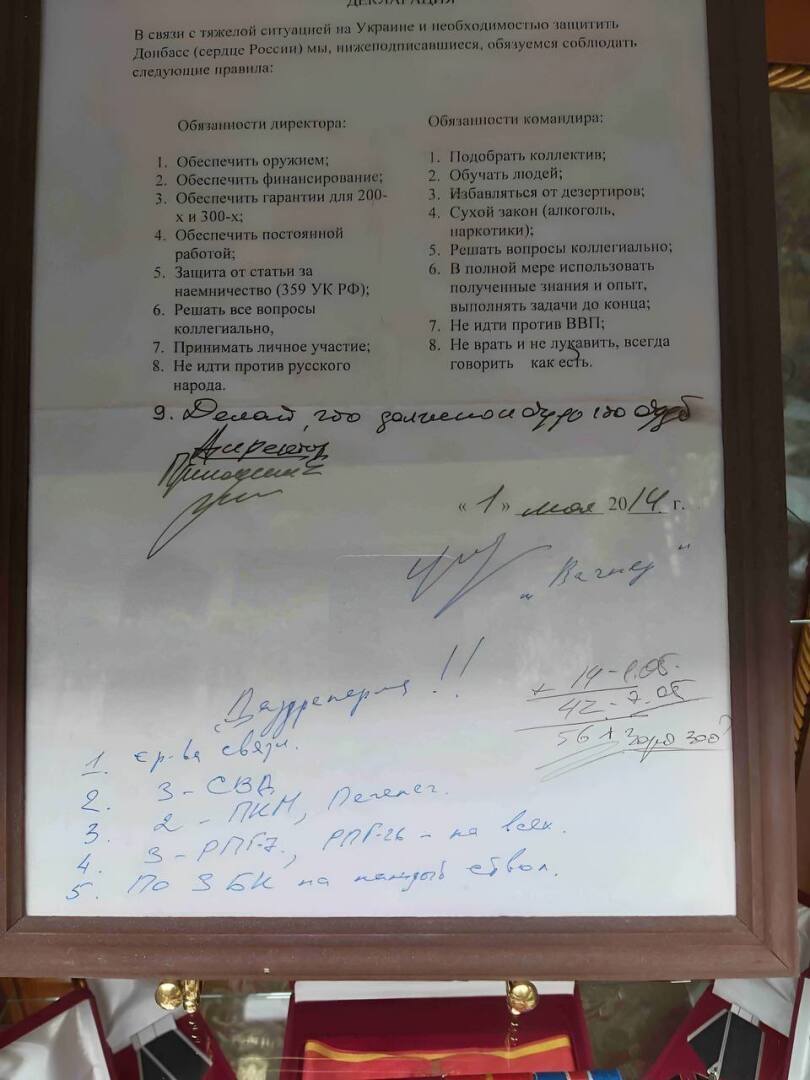 ДЕКЛАРАЦИЯ
В связи с тяжелой ситуацией на Украине и необходимостью защитить
Донбасс (сердце России) мы, нижеподписавшиеся, обязуемся соблюдать
следующие правила:
Обязанности директора:
1. Обеспечить оружием;
2. Обеспечить финансирование;
3. Обеспечить гарантии для 200-
х и 300-х;
4. Обеспечить постоянной
работой;
5. Защита от статьи за
наемничество (359 УК РФ);
6. Решать все вопросы
коллегиально,
7. Принимать личное участие;
8. Не идти против русского
народа.
Обязанности командира:
1. Подобрать коллектив;
2. Обучать людей;
3. Избавляться от дезертиров;
4. Сухой закон (алкоголь,
наркотики);
5. Решать вопросы коллегиально;
6. В полной мере использовать
полученные знания и опыт,
выполнять задачи до конца;
7. Не идти против ВВП;
8. Не врать и не лукавить, всегда
говорить как есть.
9. Делай, что должен и будь что будет
Директор
Пригожин
« 1 » мая 2014 г.
"Вагнер"
!!
1. ср-ва связи.
2. 3 - СВД
3. 2 - ПКМ, Печенег.
4. 3 - РПГ-7, РПГ-26 - на всех.
5. По 3 БК на каждый ствол.
+ 14 - 1.05.
42 - 7.05
56